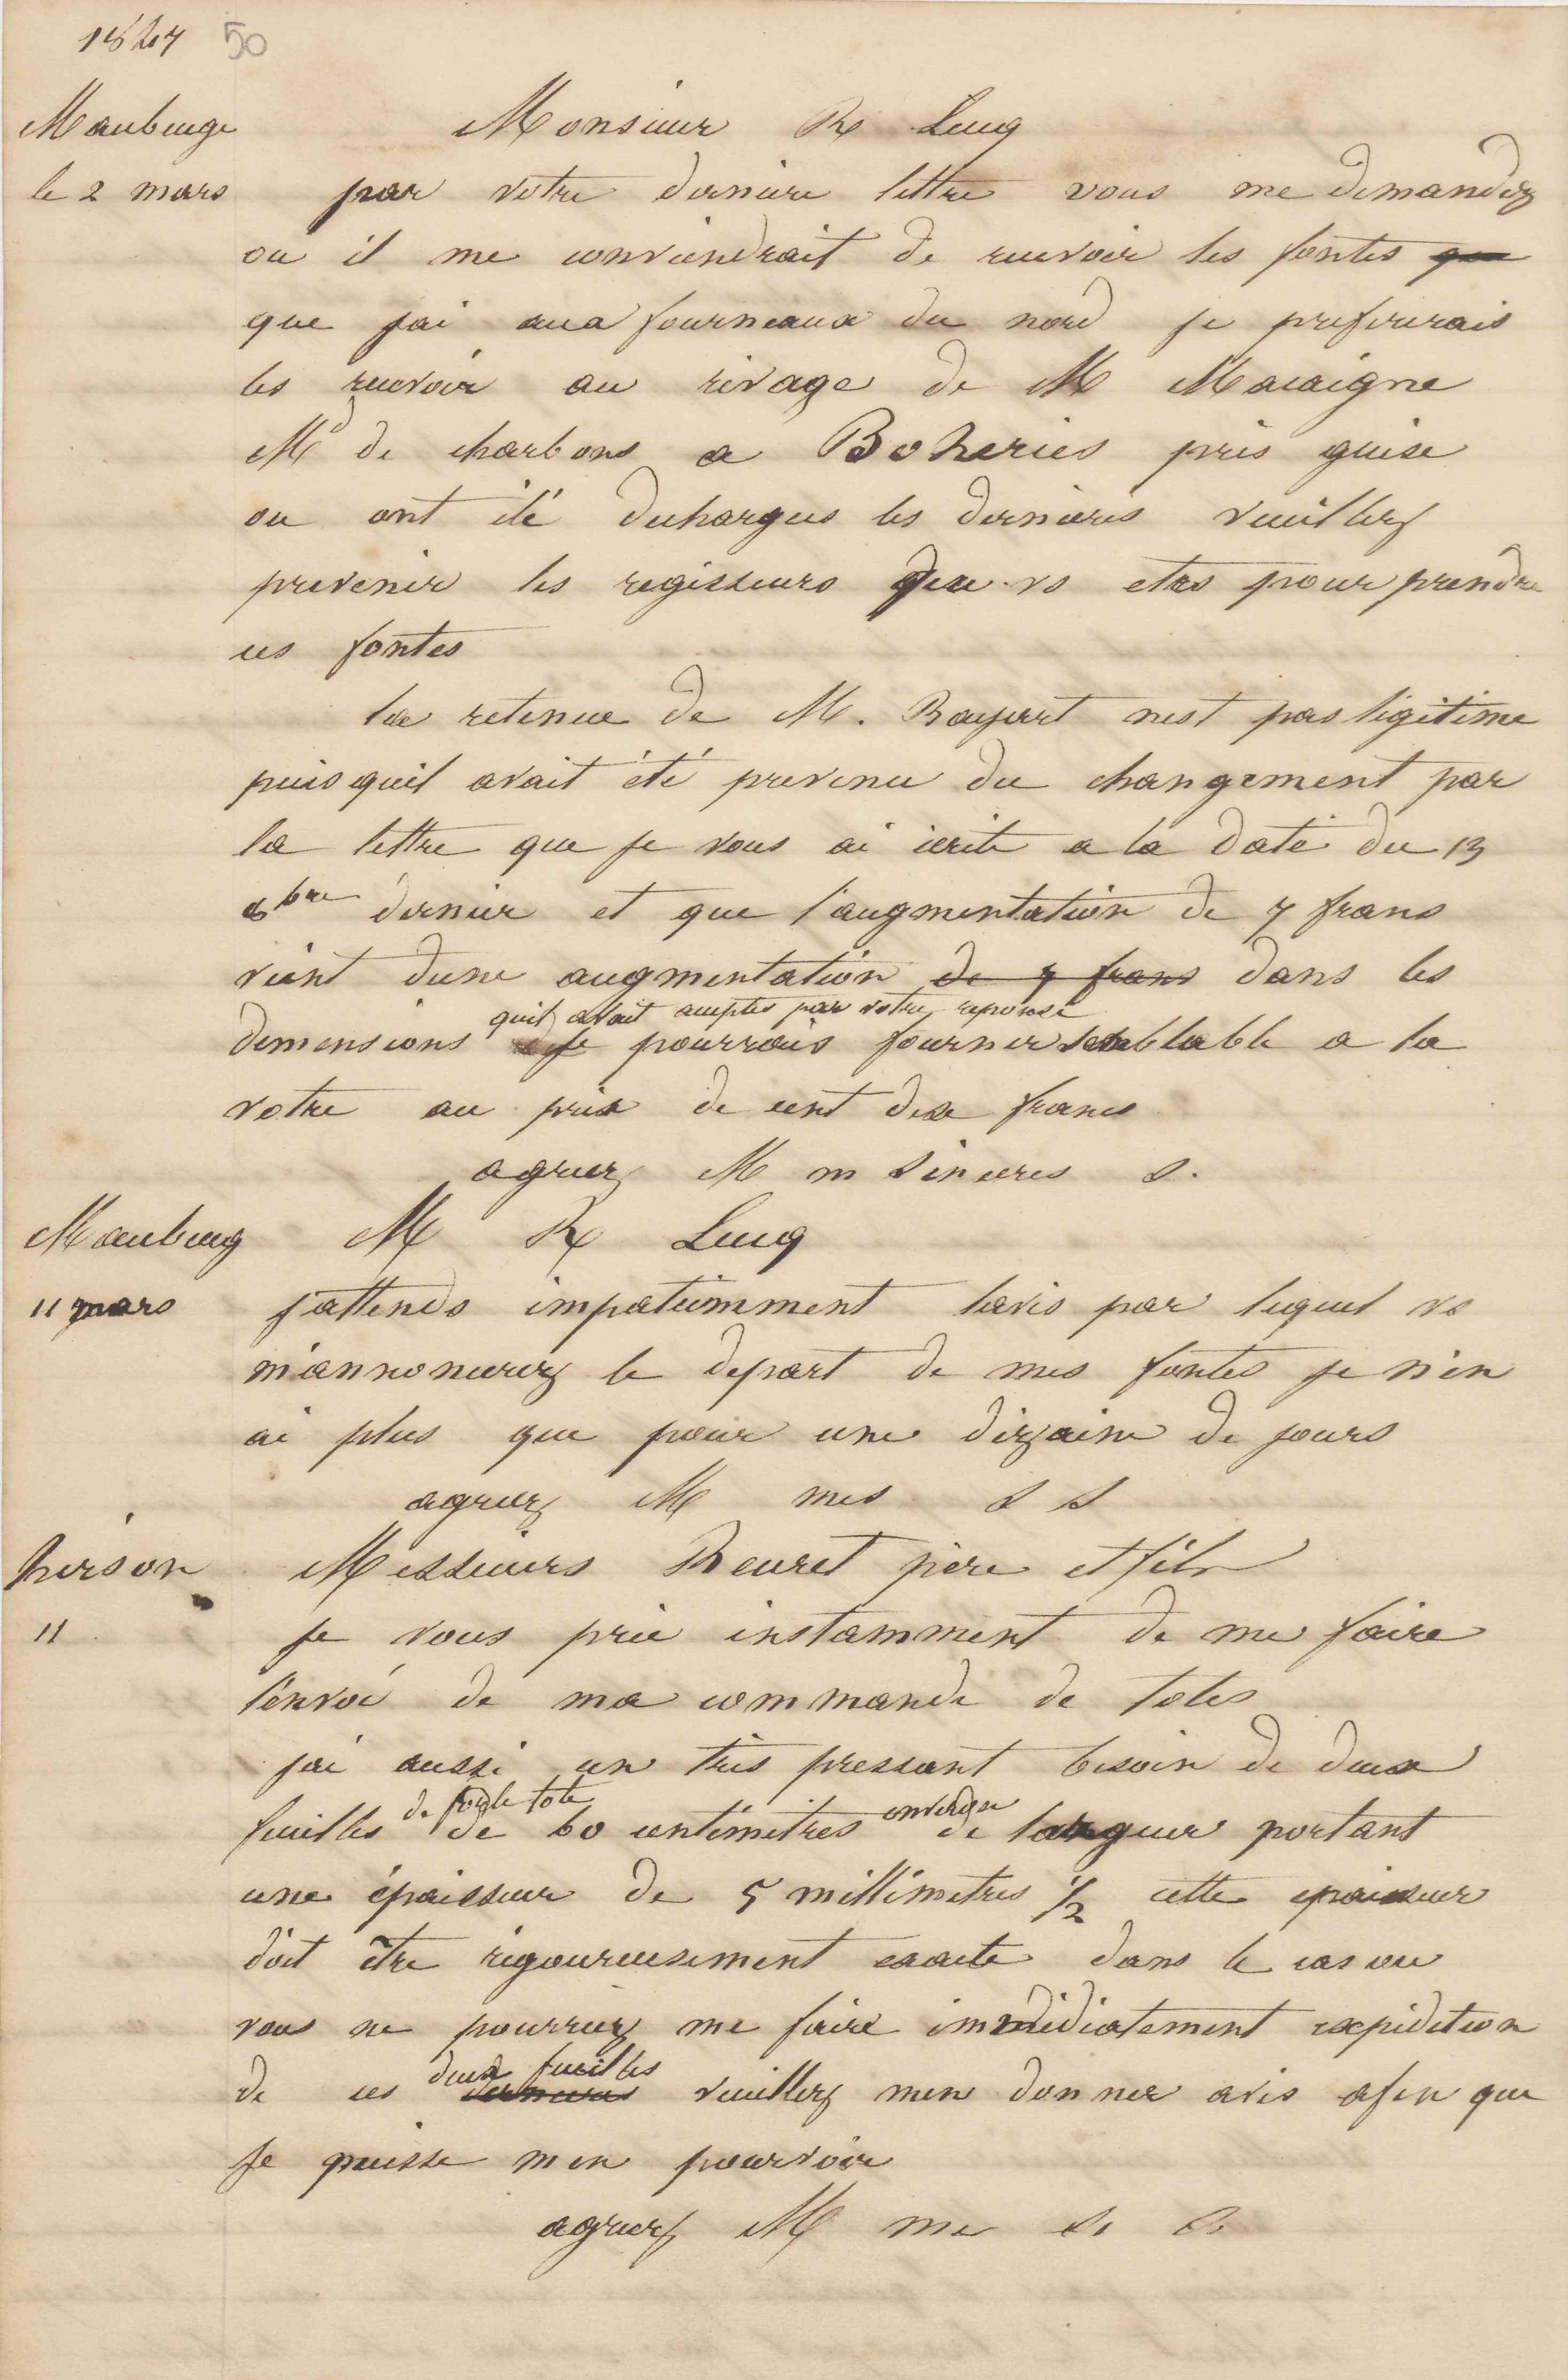 1847 50
Maubeuge Monsieur R Lucq
le 2 mars par votre derniere lettre vous me demandez
ou il me conviendrait de recevoir les fontes que
que jai aux fourneaux du nord je prefererais
les recevoir au rivage de M Macaigne
Md de charbons a Boheries près guise
ou ont été dechargees les dernieres veuillez
prevenir les regisseurs que vs etes pour prendre
ces fontes
la retenue de M. Rayart nest pas legitime
puis quil avait été prevenu du changement par
la lettre que je vous ai ecrite a la date du 13
8bre dernier et que l'augmentation de 7 frans
vient dune augmentation de 7 frans dans les
quil avait acceptés par votre reponse
demensions je pourrais fournir semblable a la
votre au prix de cent dix francs
agreez M m sinceres s.
Maubeug M R Lucq
11 mars j'attends impatiemment lavis par lequel vs
m'annoncerez le depart de mes fontes je n'en
ai plus que pour une dizaine de jours
agreez M mes s s
hirson Messieurs Beuret père et fils
11 je vous prie instamment de me faire
l'envoi de ma commande de toles
jai aussi un très pressant besoin de deux
de forte tole environ
feuilles de 60 centimètres de largeur portant
une épaisseur de 5 millimetres 1/2 cette epaisseur
doit être rigoureusement exacte dans le cas ou
vous ne pourriez me faire immédiatement expédition
deux feuilles
de ces dernieres veuillez men donner avis afin que
je puisse men pourvoir
agreez M me s. s.